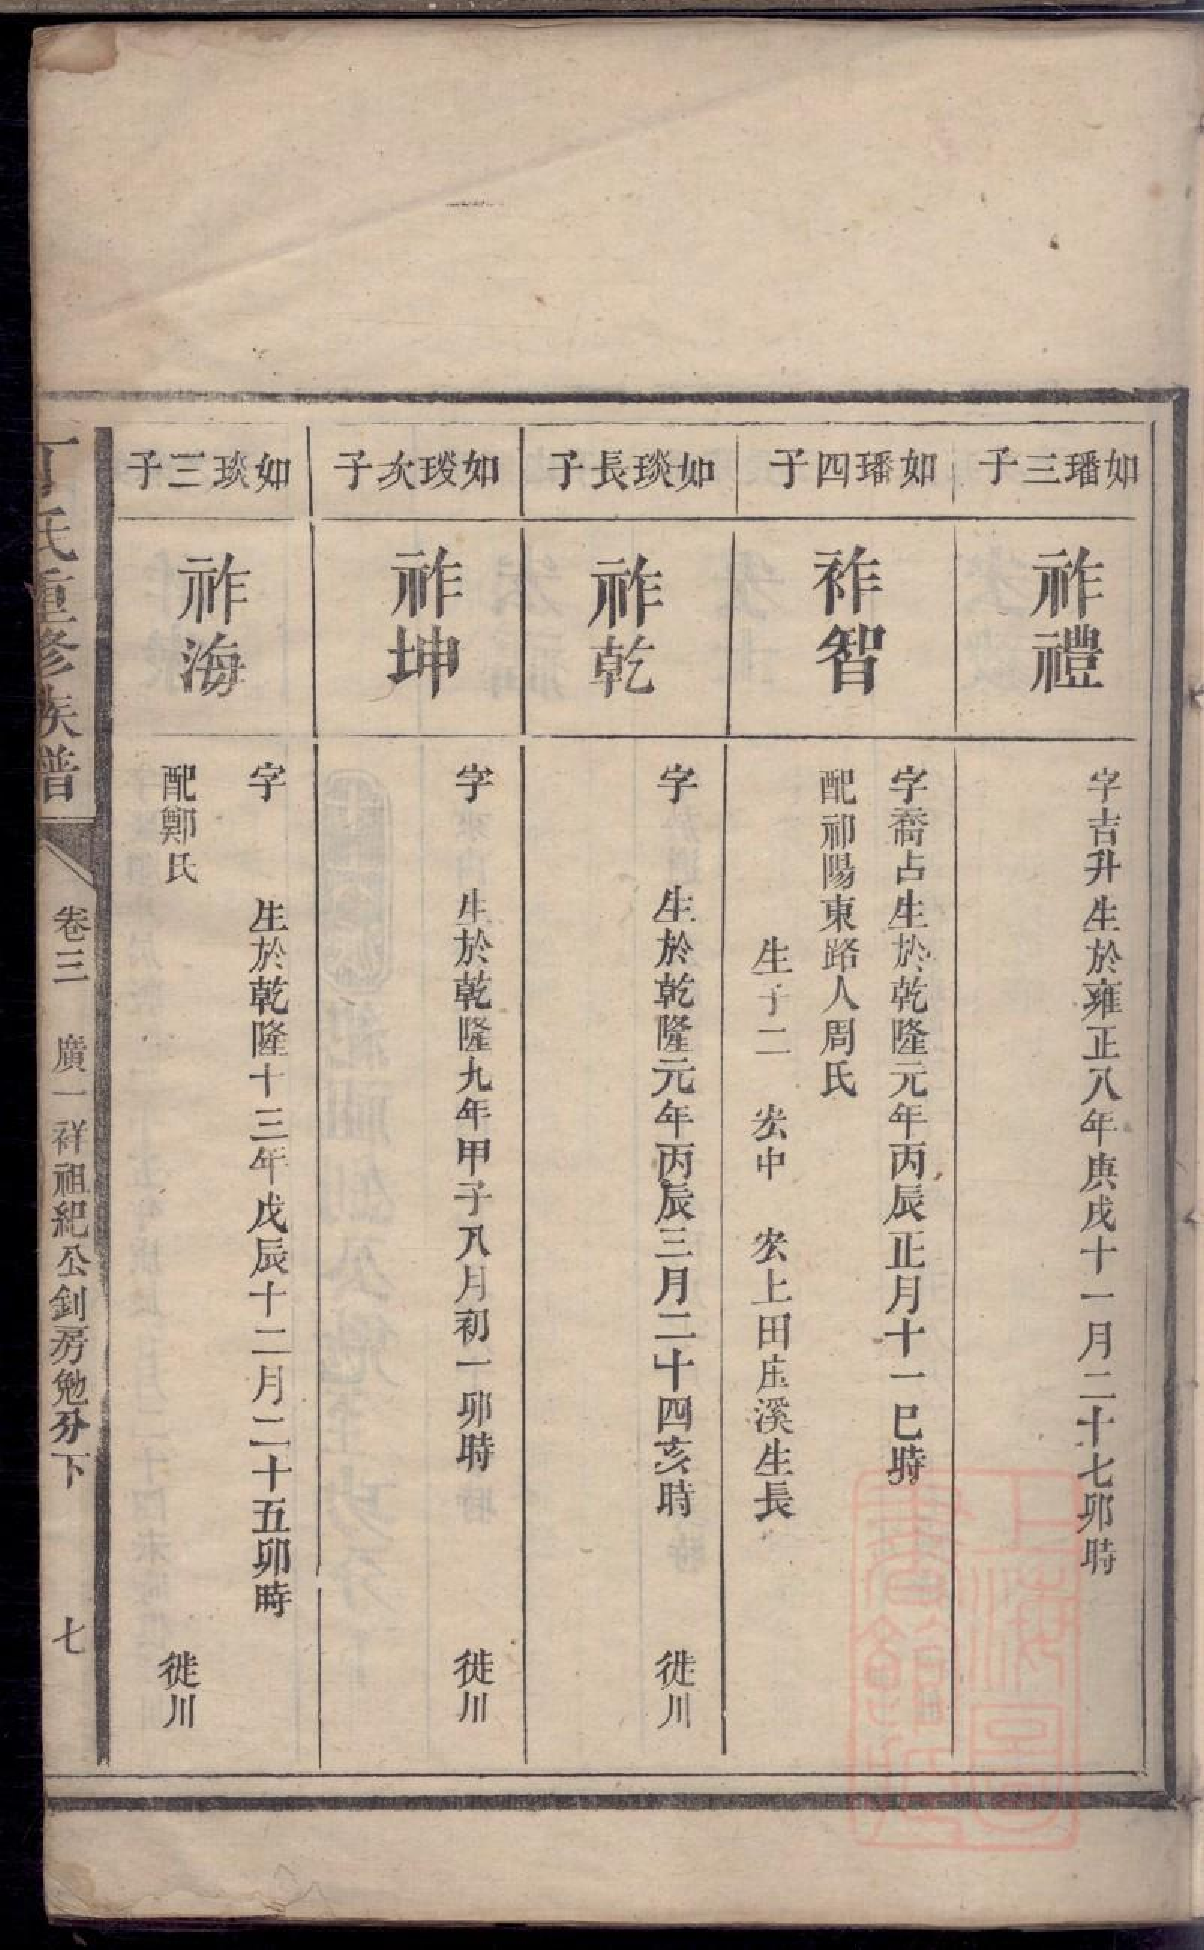 如璠三子
祚禮
字吉升生於雍正八年庚戌十一月二十七卯時
如璠四子
祚智
字喬占生於乾隆元年丙辰正月十一巳時
配祁陽東路人周氏
生子二　宏中　宏上田庄溪生長
如琰長子
祚乾
字　生於乾隆元年丙辰三月二十四亥時　徙川
如琰次子
祚坤
字　生於乾隆九年甲子八月初一卯時　徙川
如琰三子
祚海
字　生於乾隆十三年戊辰十二月二十五卯時
配鄭氏　徙川
氏重修族譜
卷三　廣一祥祖紀公釗房勉分下　七
上海圖書館藏